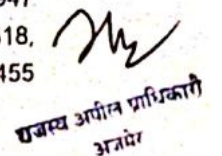 18,
455
राजस्व अपील प्राधिकारी
अजमेर